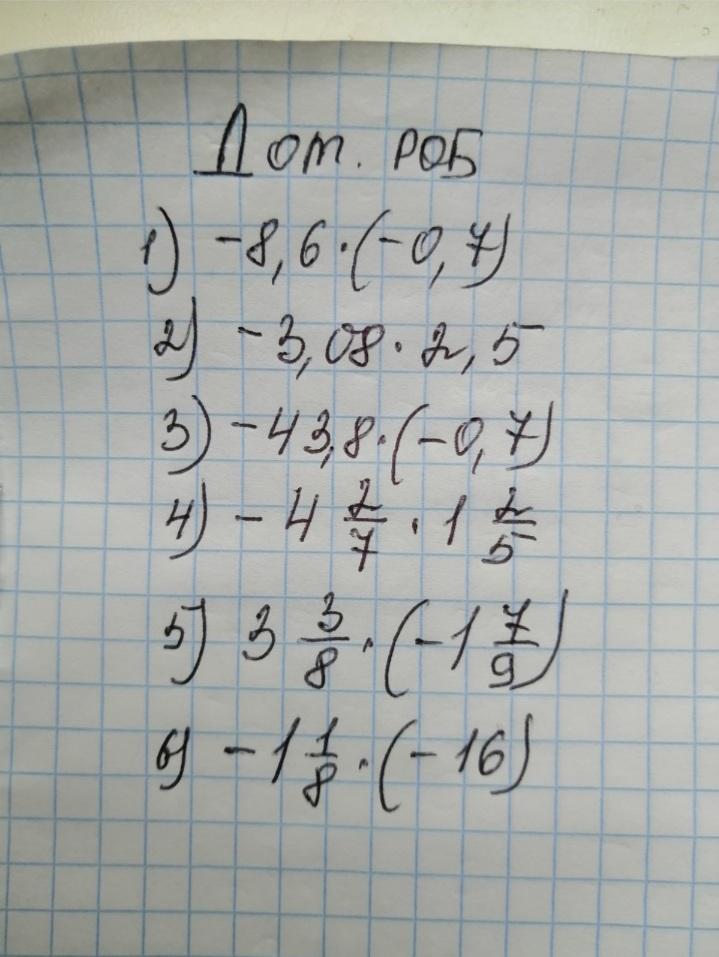 Дом. РОБ
1) -8,6·(-0,7)
2) -3,08·2,5
3) -43,8·(-0,7)
4) -4 2/7 · 1 2/5
5) 3 3/8 · (-1 7/9)
6) -1 1/8 · (-16)